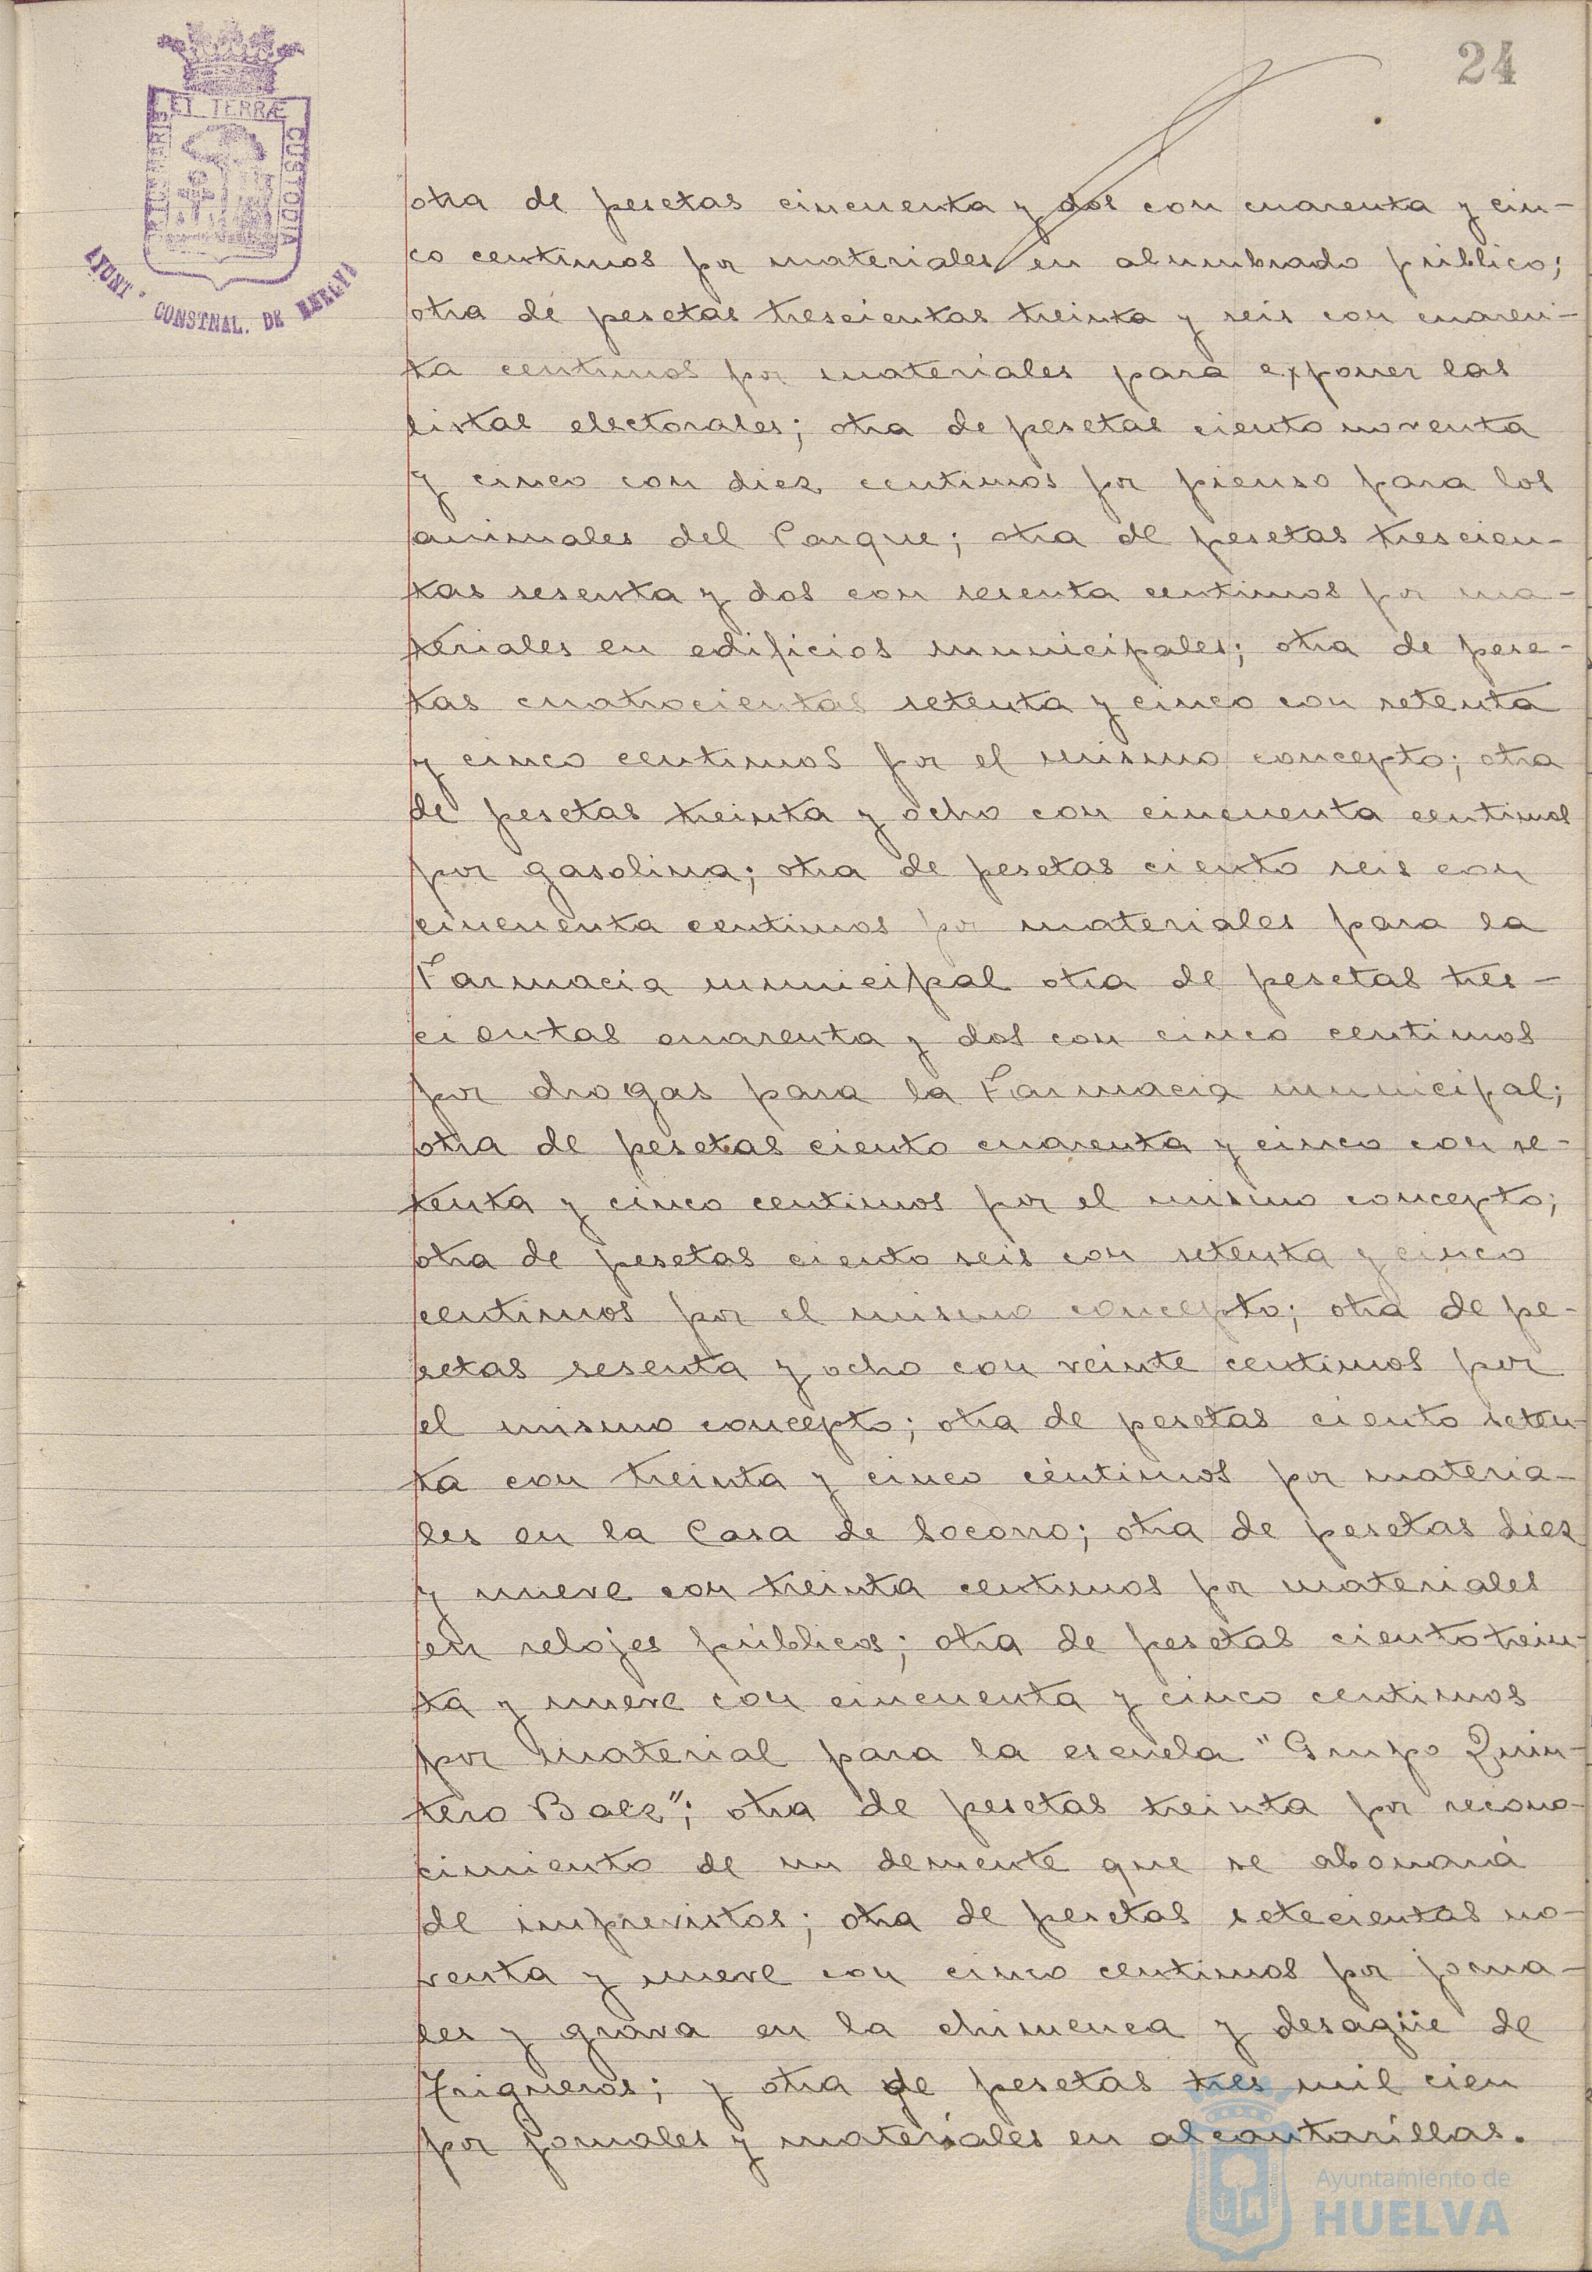 24
PORTUS MARIS ET TERRÆ CUSTODIA
AYUNT. CONSTNAL. DE HUELVA
otra de pesetas cincuenta y dos con cuarenta y cin-
co centimos por materiales en alumbrado público;
otra de pesetas trescientas treinta y seis con cuaren-
ta centimos por materiales para exponer las
listas electorales; otra de pesetas ciento noventa
y cinco con diez centimos por pienso para los
animales del Parque; otra de pesetas trescien-
tas sesenta y dos con sesenta centimos por ma-
teriales en edificios municipales; otra de pese-
tas cuatrocientas setenta y cinco con setenta
y cinco centimos por el mismo concepto; otra
de pesetas treinta y ocho con cincuenta centimos
por gasolina; otra de pesetas ciento seis con
cincuenta centimos por materiales para la
Farmacia municipal otra de pesetas tres-
cientas cuarenta y dos con cinco centimos
por drogas para la Farmacia municipal;
otra de pesetas ciento cuarenta y cinco con se-
tenta y cinco centimos por el mismo concepto;
otra de pesetas ciento seis con setenta y cinco
centimos por el mismo concepto; otra de pe-
setas sesenta y ocho con veinte centimos por
el mismo concepto; otra de pesetas ciento seten-
ta con treinta y cinco céntimos por materia-
les en la Casa de Socorro; otra de pesetas diez
y nueve con treinta centimos por materiales
en relojes públicos; otra de pesetas ciento trein-
ta y nueve con cincuenta y cinco centimos
por material para la escuela "Grupo Quin-
tero Baez"; otra de pesetas treinta por recono-
cimiento de un demente que se abonará
de imprevistos; otra de pesetas setecientas no-
venta y nueve con cinco centimos por jorna-
les y grava en la chimenea y desagüe de
Trigueros; y otra de pesetas tres mil cien
por jornales y materiales en alcantarillas.
Ayuntamiento de
HUELVA